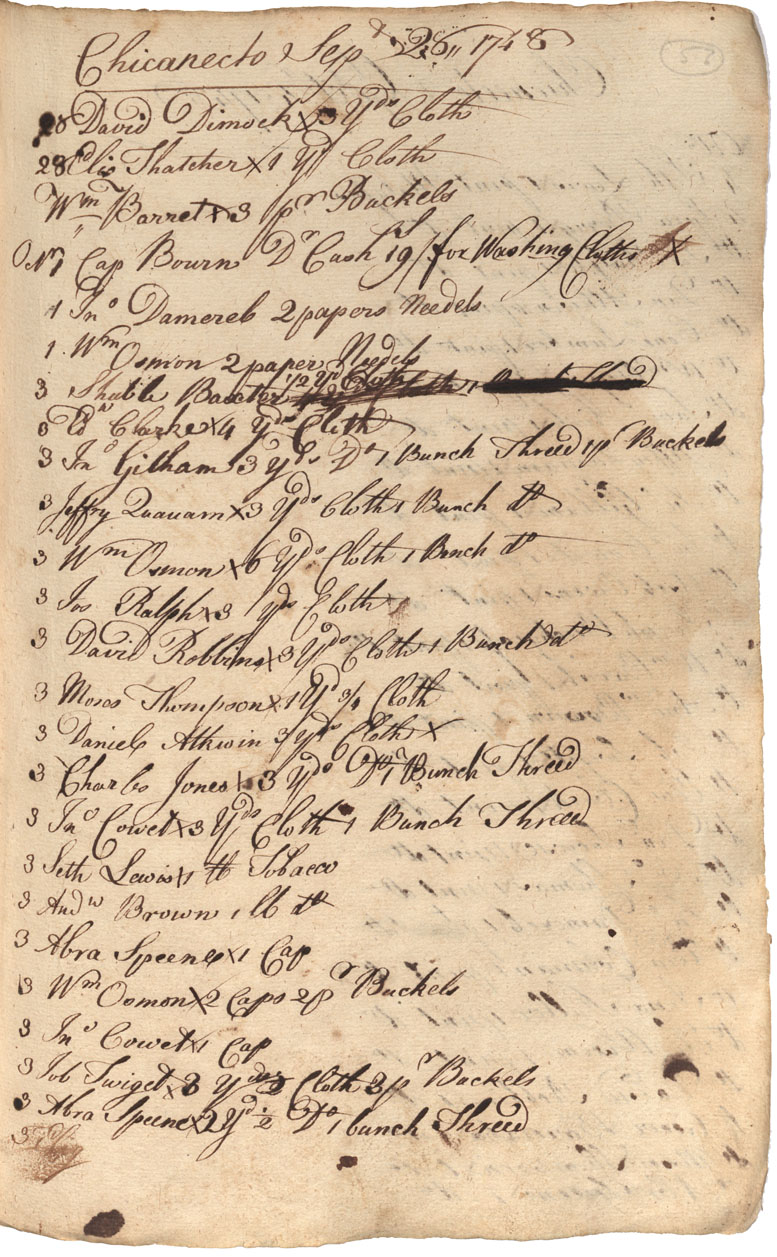 Chicanecto Sepr 26 1748
57
28 David Dimock x 3 Yds Cloth
28 Elis Thatcher x 1 Yd Cloth
Wm Barret x 3 pr Buckels
Nr 1 Cap Bourn Dr Cash 19/ for Washing Cloths x
1 Jno Damereb 2 papers Needels
1 Wm Osmon 2 paper Needels
3 Shuble Baxter 1/2 Yd Cloth
3 Edw Clarke x 4 Yds Cloth
3 Jno Gilham 3 Yds Do 1 Bunch Threed 1 pr Buckels
3 Jeffry Quauam x 3 Yds Cloth 1 Bunch do
3 Wm Osmon x 6 Yds Cloth 1 Bunch do
3 Jos Ralph x 3 yds Cloth
3 David Robbins x 3 Yds Cloth 1 Bunch do
3 Moses Thompson x 1 Yd 3/4 Cloth
3 Daniel Atkwin 3 yds Cloth x
3 Charles Jones x 3 Yds Do 1 Bunch Threed
3 Jno Cowet x 3 Yds Cloth 1 Bunch Threed
3 Seth Lewis x 1 lb Tobacco
3 Andw Brown 1 lb do
3 Abra Speene x 1 Cap
3 Wm Osmon x 2 Caps 2 pr Buckels
3 Jno Cowet x 1 Cap
3 Job Twiget x 3 Yds Cloth 3 pr Buckels
3 Abra Speene x 2 Yd 1/2 Do 1 bunch Threed